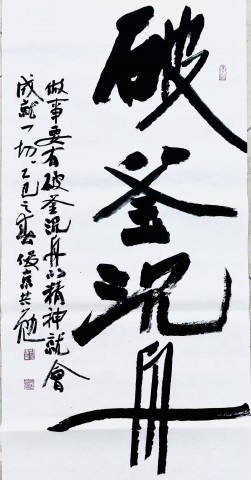 破釜沉舟
做事要有破釜沉舟的精神就會
成就一切乙巳之春俊京共勉